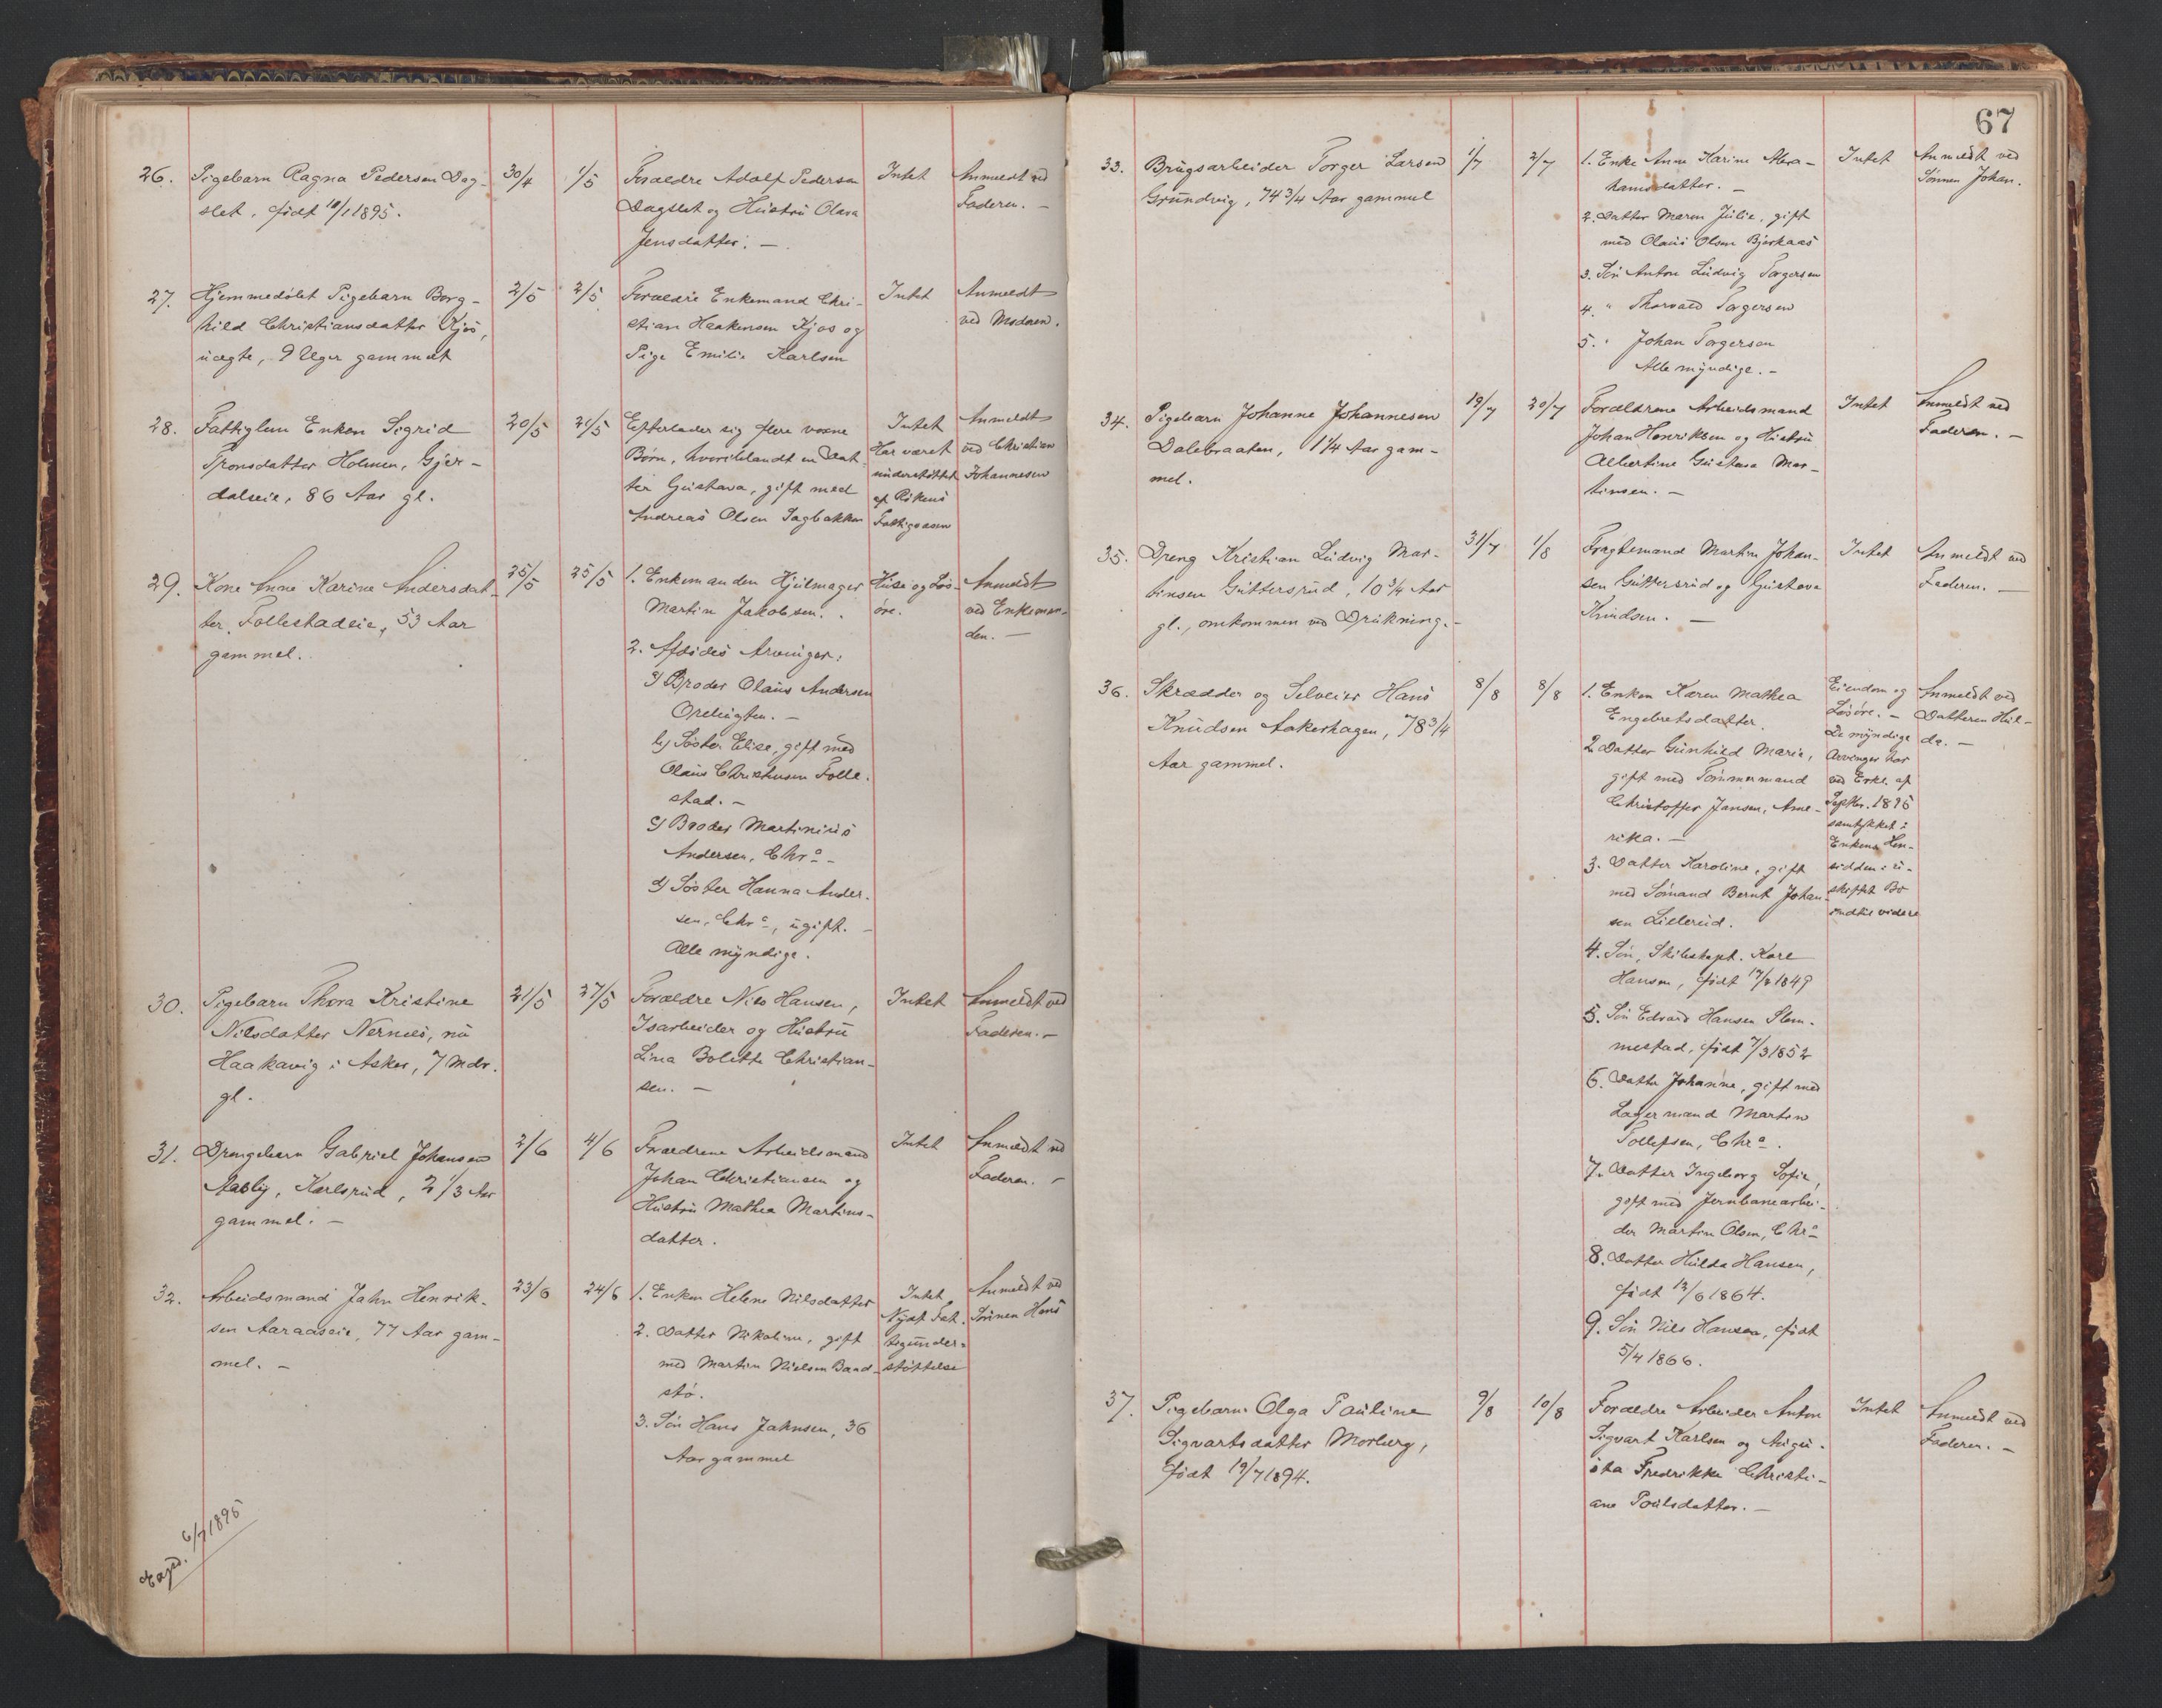 26.
Pigebarn Ragna Pedersen Dag-
slet, født 10/1 1895.
30/4
1/5
Forældre Adolf Pedersen
Dagslet og Hustru Olava
Jensdatter. —
Intet
Anmeldt ved
Faderen. —
27.
Hjemmedøbt Pigebarn Borg-
hild Christiansdatter Kjos,
uægte, 9 Uger gammelt
2/5
2/5
Forældre Enkemand Chri-
stian Haakensen Kjos og
Pige Emilie Karlsen
Intet
Anmeldt
ved Moderen.
28.
Fattiglem Enken Sigrid
Tronsdatter Holmen, Gjer-
dalseie, 86 Aar gl.
20/5
21/5
Efterlader sig flere voxne
Børn, hvoriblandt en Dat-
ter Gustava, gift med
Andreas Olsen Sagbakken
Intet
Har været
understøttet
af Rökens
Fattigvæsen
Anmeldt
ved Christian
Johannesen
29.
Kone Anne Karine Andersdat-
ter, Follestadeie, 53 Aar
gammel.
25/5
25/5
1. Enkemanden Hjulmager
Martin Jakobsen.
2. Afdødes Arvinger:
a) Broder Olaus Andersen
b) Søster Elise, gift med
Olaus Christensen Folle-
stad. —
c) Broder Martinius
Andersen, Chra —
d) Søster Hanna Ander-
sen, Chra, ugift. —
Alle myndige.
Huse og Løs-
øre.
Anmeldt
ved Enkeman-
den. —
30.
Pigebarn Thora Kristine
Nilsdatter Nernes, nu
Haakavig i Asker, 7 Mdr.
gl.
21/5
27/5
Forældre Nils Hansen,
Isarbeider og Hustru
Lina Bolette Christian-
sen. —
Intet
Anmeldt ved
Faderen. —
31.
Drengebarn Gabriel Johansen
Aasly, Karlsrud, 2 1/3 Aar
gammel. —
2/6
4/6
Forældrene Arbeidsmand
Johan Christiansen og
Hustru Mathea Martins-
datter.
Intet
Anmeldt ved
Faderen. —
32.
Arbeidsmand Jahn Henrik-
sen Aaraaseie, 77 Aar gam-
mel. —
23/6
24/6
1. Enken Helene Nilsdatter
2. Datter Nikoline, gift
med Martin Nielsen Baad-
stø.
3. Søn Hans Jahnsen, 36
Aar gammel
Intet
Nydt Fat-
tigunder-
støttelse
Anmeldt ved
Sønnen Hans
Expd. 6/7 1895
67
33.
Brugsarbeider Torger Larsen
Grundvig, 74 3/4 Aar gammel
1/7
2/7
1. Enke Anne Karine Abra-
hamsdatter. —
2. Datter Maren Julie, gift
med Olaus Olsen Bjerkaas
3. Søn Anton Ludvig Torgersen
4. " Thorvald Torgersen
5. " Johan Torgersen
Alle myndige. —
Intet
Anmeldt ved
Sønnen Johan.
34.
Pigebarn Johanne Johannesen
Dalebraaten, 1 1/4 Aar gam-
mel.
19/7
20/7
Forældrene Arbeidsmand
Johan Henriksen og Hustru
Albertine Gustava Mar-
tinsen. —
Intet
Anmeldt ved
Faderen. —
35.
Dreng Kristian Ludvig Mar-
tinsen Guttersrud, 10 3/4 Aar
gl., omkommen ved Drukning. —
31/7
1/8
Fragtemand Martin Johan-
sen Guttersrud og Gustava
Knudsen. —
Intet
Anmeldt ved
Faderen. —
36.
Skrædder og Selveier Hans
Knudsen Aakerhagen, 78 3/4
Aar gammel.
8/8
8/8
1. Enken Karen Mathea
Engebretsdatter.
2 Datter Gunhild Marie,
gift med Tømmermand
Christoffer Jansen, Ame-
rika. —
3. Datter Karoline, gift
med Sømand Bernt Johan-
sen Lillerud.
4. Søn, Skibskapt. Karl
Hansen, født 17/2 1849
5. Søn Edvard Hansen Slem-
mestad, født 7/3 1852
6. Datter Johanne, gift med
Lagermand Martin
Tollefsen, Chra.
7. Datter Ingeborg Sofie,
gift med Jernbanearbei-
der Martin Olsen, Chra
8. Datter Hulda Hansen,
født 12/6 1864.
9. Søn Nils Hansen, født
5/4 1866.
Eiendom og
Løsøre. —
De myndige
Arvinger har
ved Erkl. af
Septbr. 1895
samtykket i
Enkens Hen-
sidden i u-
skiftet Bo
indtil videre
Anmeldt ved
Datteren Hul-
da. —
37.
Pigebarn Olga Pauline
Sigvartsdatter Morberg,
født 19/7 1894.
9/8
10/8
Forældre Arbeider Anton
Sigvart Karlsen og Augu-
sta Fredrikke Christi-
ane Poulsdatter. —
Intet
Anmeldt ved
Faderen. —